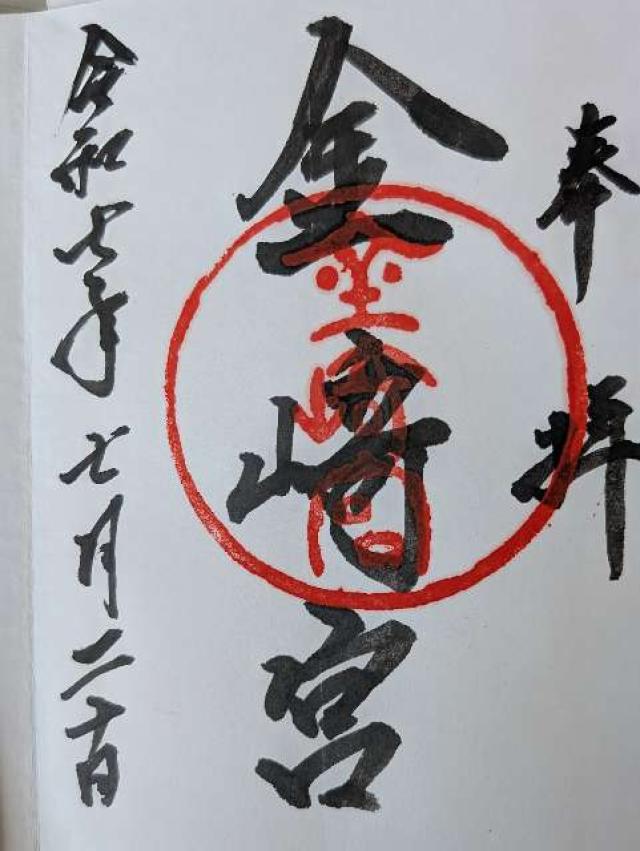 奉拝
金崎宮
令和七年七月二十日